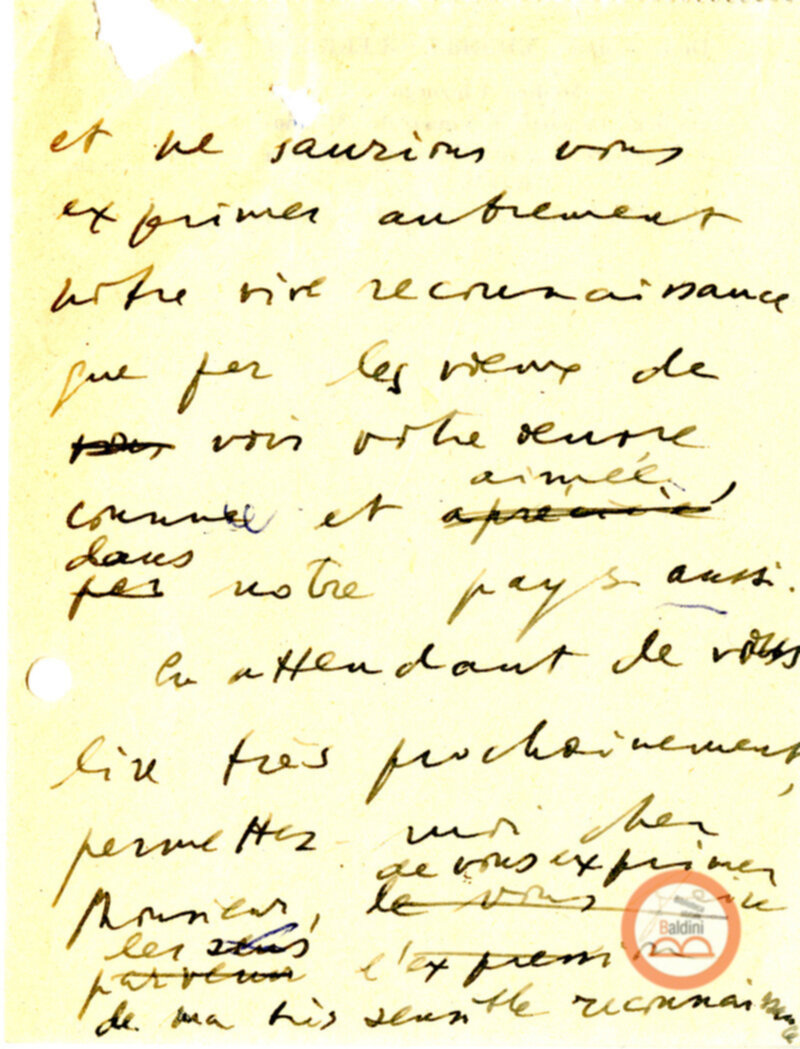 et ne saurions vous
exprimer autrement
notre vive reconnaissance
que par les vieux de
vous voir votre oeuvre
aimée,
connue et apréciée
dans
par notre pays aussi.
En attendant de vous
lire très prochainement,
permettez moi cher
de vous exprimer
Monsieur, de vous
les sens
parvenir l'expression
de ma très sensible reconnaissance
Baldini